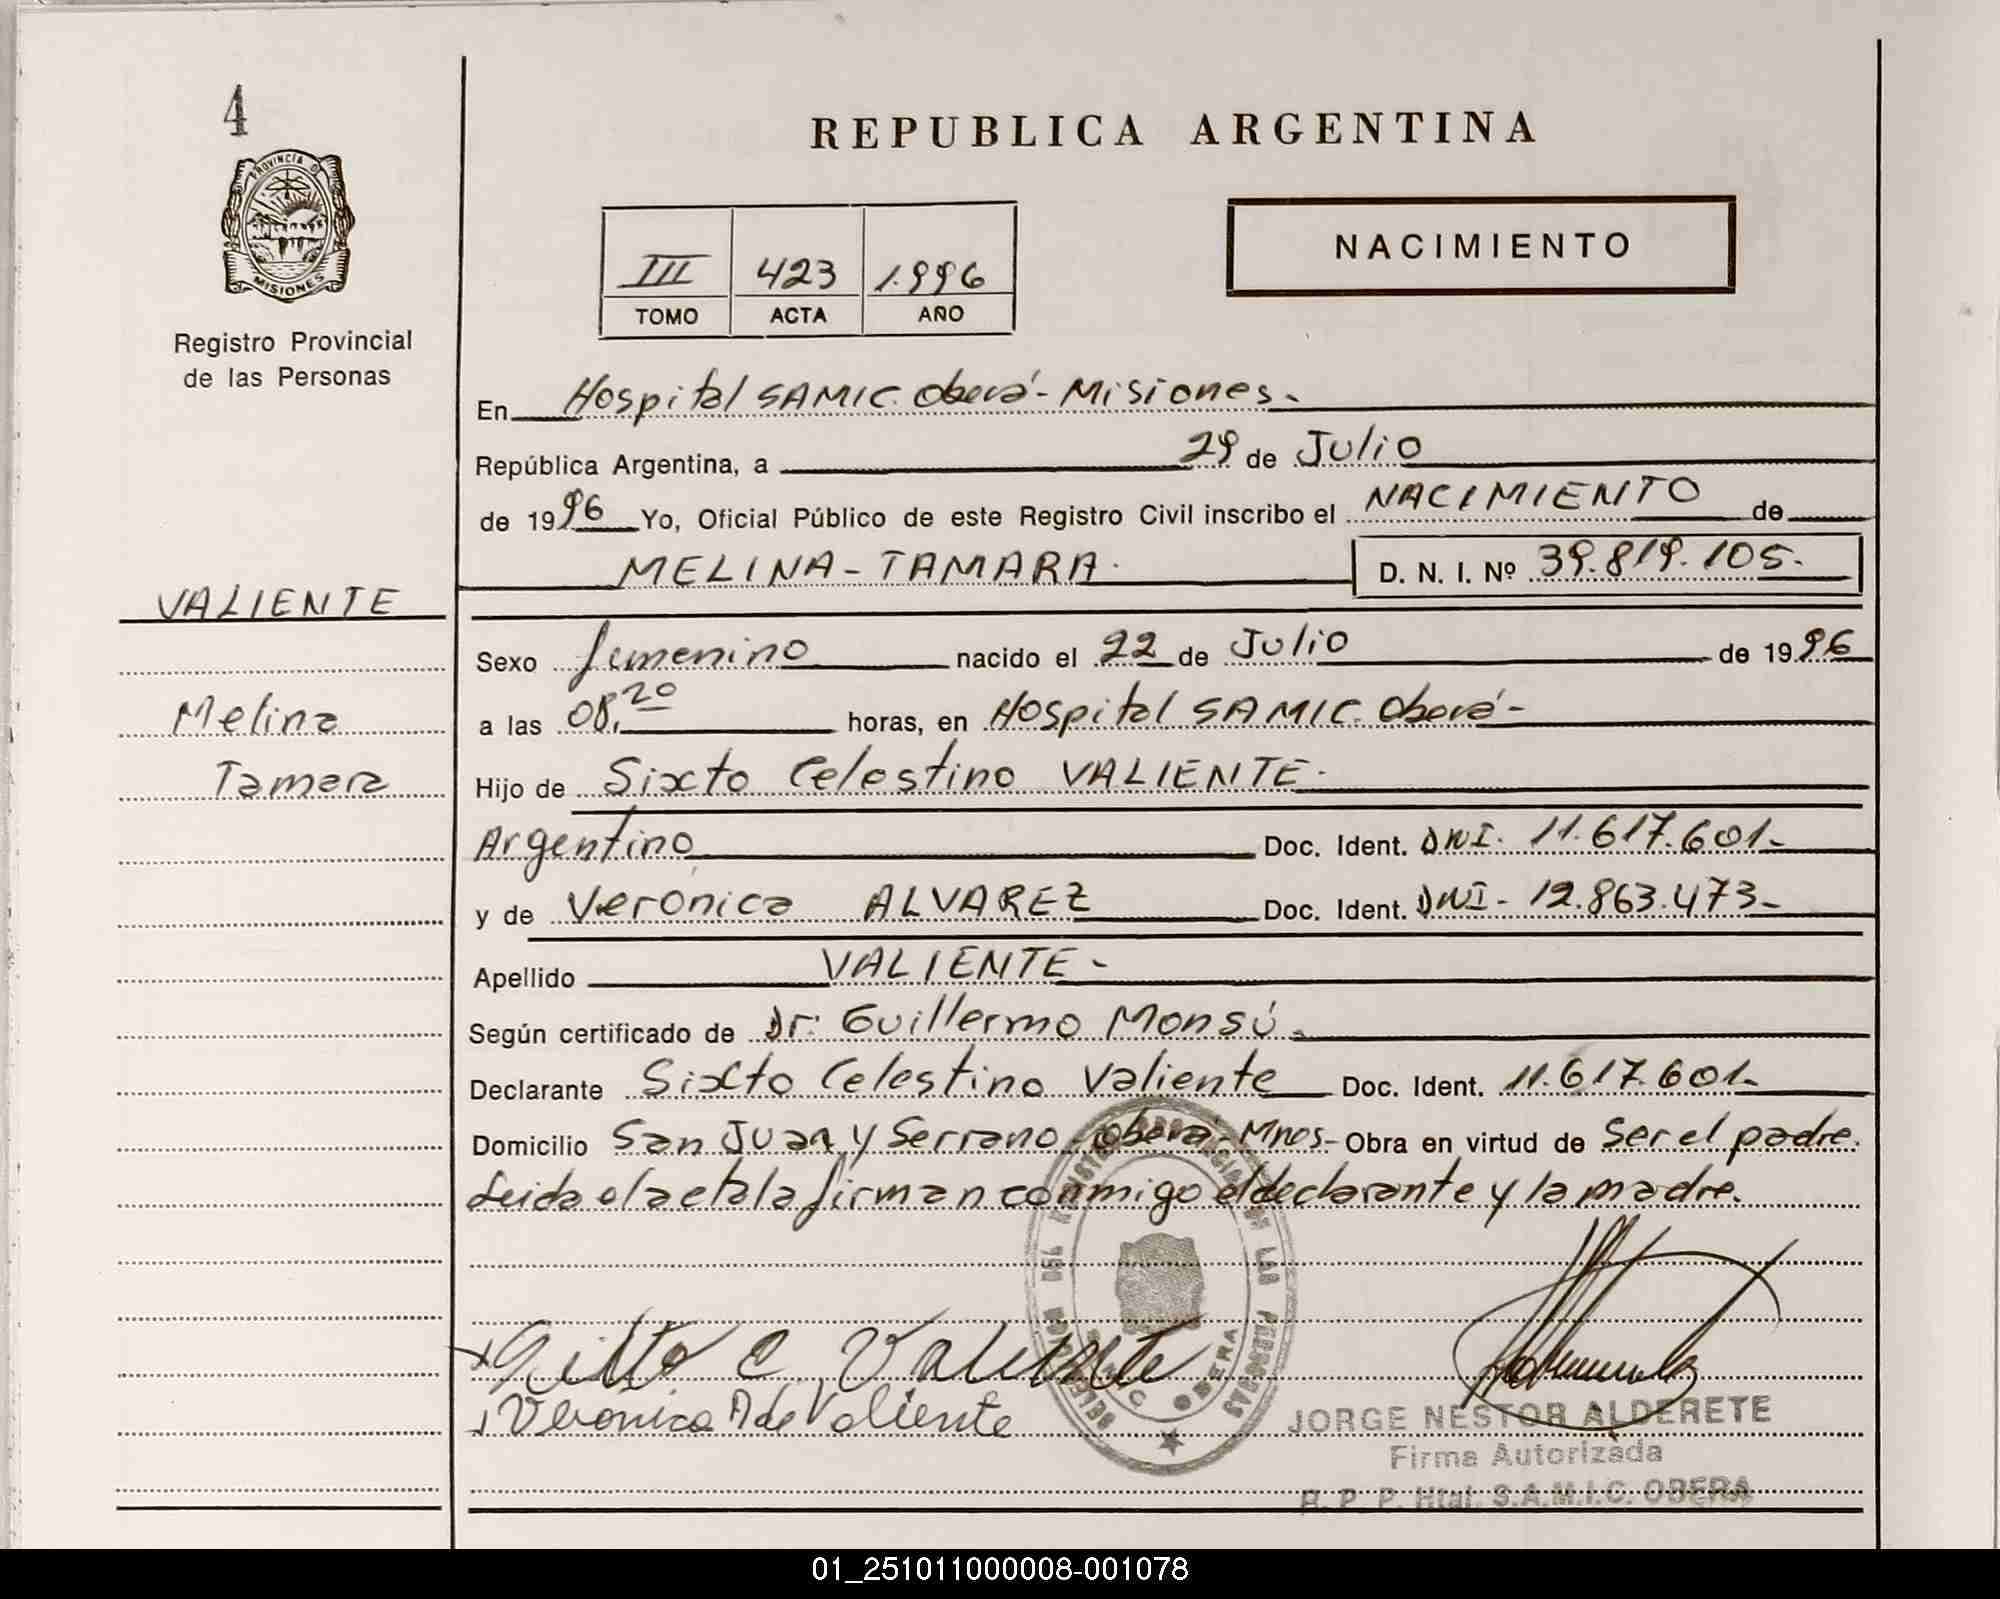 4
PROVINCIA DE
MISIONES
Registro Provincial
de las Personas
VALIENTE
Melina
Tamara
REPUBLICA ARGENTINA
III 423 1.996
TOMO ACTA AÑO
NACIMIENTO
En Hospital SAMIC Oberá - Misiones.
República Argentina, a 29 de Julio
de 1996 Yo, Oficial Público de este Registro Civil inscribo el NACIMIENTO de
MELINA - TAMARA. D. N. I. Nº 39.819.105.
Sexo femenino nacido el 22 de Julio de 1996
a las 08,20 horas, en Hospital SAMIC Oberá -
Hijo de Sixto Celestino VALIENTE.
Argentino Doc. Ident. DNI. 11.617.601.
y de Verónica ALVAREZ Doc. Ident. DNI - 12.863.473 -
Apellido VALIENTE -
Según certificado de Dr. Guillermo Monsú.
Declarante Sixto Celestino Valiente Doc. Ident. 11.617.601.
Domicilio San Juan y Serrano - Oberá - Mnes - Obra en virtud de Ser el padre.
Leida el acta la firman conmigo el declarante y la madre.
Sixto C Valiente
Verónica A de Valiente
OBERA
JORGE NESTOR ALDERETE
Firma Autorizada
R. P. P. Htal. S.A.M.I.C. OBERA
01_251011000008-001078